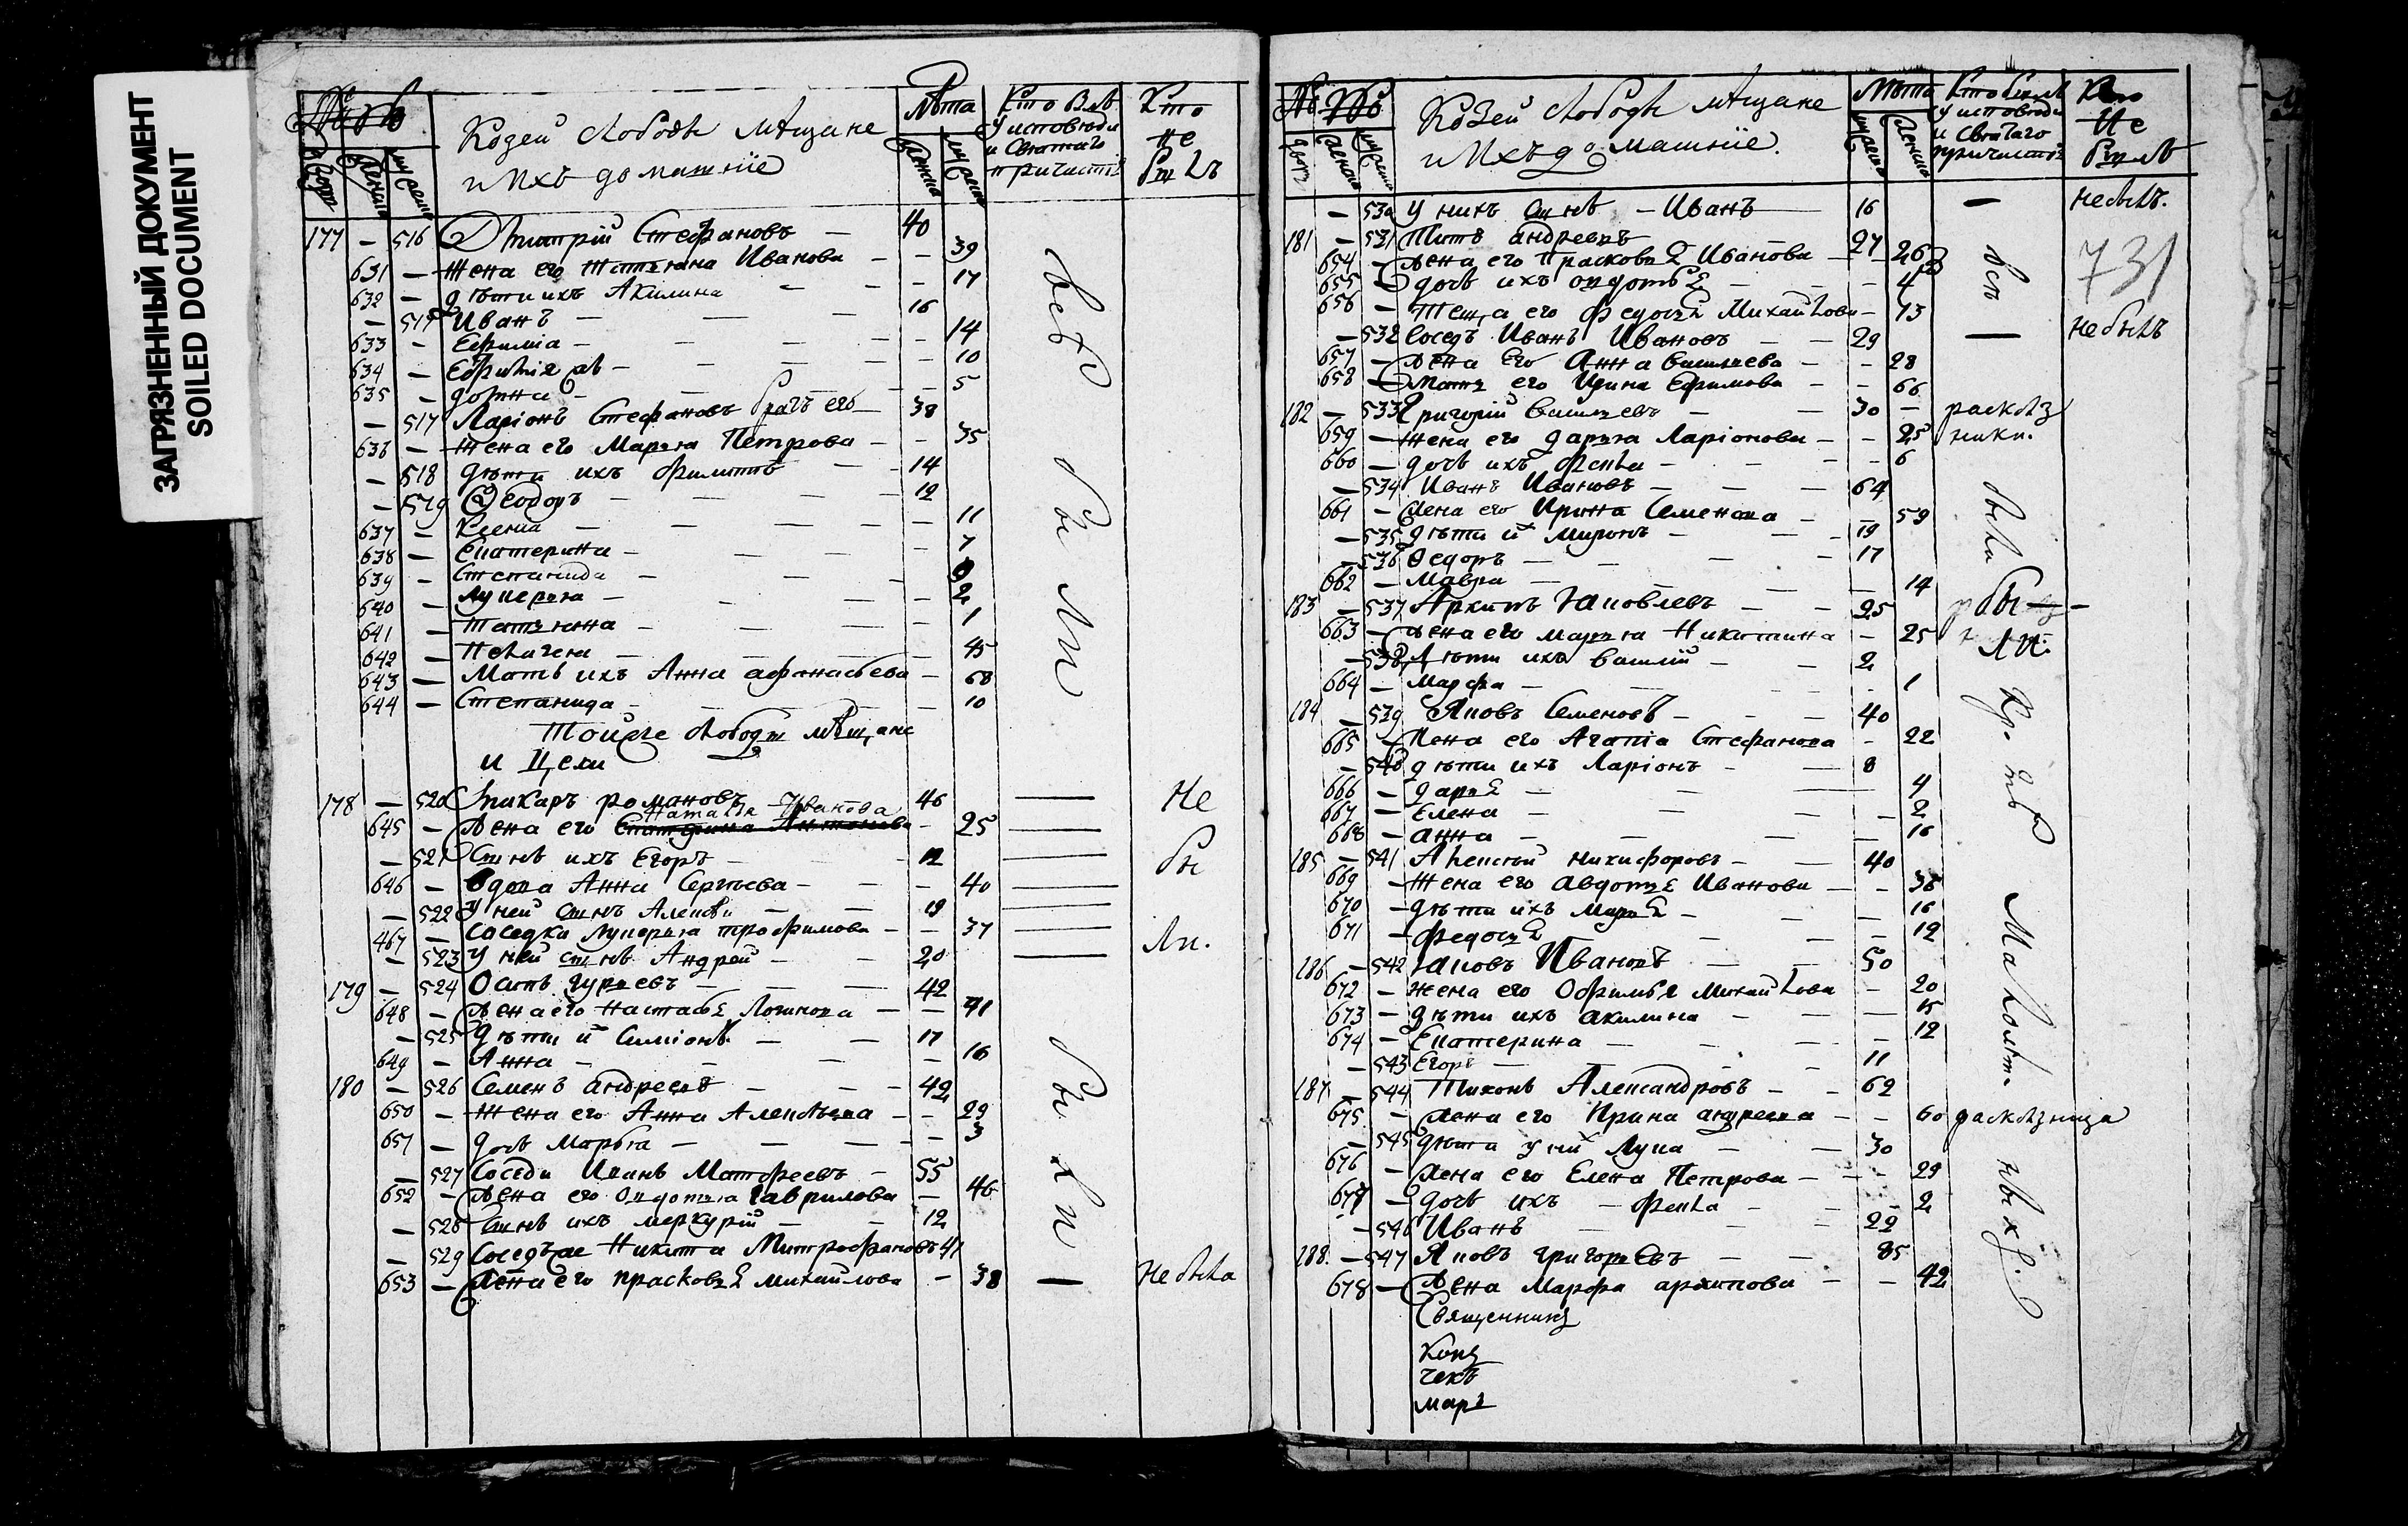 ЗАГРЯЗНЕННЫЙ ДОКУМЕНТ
SOILED DOCUMENT
слободы мѣщане
и ихъ домашнiе
лѣта
Кто
не
177 — 516 Дмитрiй Стефановъ — 40
631 — Жена его Татьяна Иванова — — 39
632 — дѣти ихъ Акилина — — 17
— Иванъ — — 16
633 — Ефимiа — — 14
634 — — 10
635 — — 5
— 517 Ларiонъ Стефановъ братъ его — 38
636 — Жена его Марья Петрова — — 35
— 518 дѣти ихъ Филиппъ — 14
— 519 Ѳеодоръ — 12
637 — Ксенiа — — 11
638 — Екатерина — — 7
639 — Степанида —
640 — Лукерья — 2
641 — Татьяна — 1
642 — Пелагея — 45
643 — Мать ихъ Анна афанасьева — 68
644 — Степанида — 10
Тойже слободы мѣщане
и Цехи
178 — 520 Макаръ романовъ — 46
Наталья Иванова
645 — Жена его Екатерина Антонова — 25
— 521 Сынъ ихъ Егоръ — 12
646 — Вдова Анна Сергѣева — — 40
— 522 У ней сынъ Алексѣй — 19
467 — Соседка лукерья трофимова — — 37
— 523 У ней сынъ Андрей — 20
Не
бы
ли.
179 — 524 Осипъ гурьевъ — 42
648 — Жена его Настасья Логинова — — 41
— 525 дѣти и Симiонъ — 17
649 — Анна — — 16
180 — 526 Семенъ андреевъ — 42
650 — Жена его Анна Алексѣева — — 29
651 — дочь Марья — — 3
— 527 Соседи Иванъ Матфеевъ — 55
652 — Жена его Авдотья гаврилова — 46
— 528 Сынъ ихъ меркурiй — 12
— 529 Соседъ же Никита Митрофановъ 41
653 — Жена его прасковья михайлова — 38 — не была
бы
ли
слободы мѣщане
и ихъ домашнiе.
Лѣта
Кто
не
былъ
— 530 у нихъ сынъ — Иванъ — 16 — не былъ.
731
181 — 531 Титъ андреевъ 27
654 — Жена его Прасковья Иванова — 26
655 — дочь ихъ авдотья — — 4
656 — Теща его федосья Михайлова — 73
— 532 Соседъ Иванъ Ивановъ — 29 — не былъ
657 — Жена его Анна васильева — — 28
658 — мать его Ирина Ефимова — — 66
182 — 533 Григорiй васильевъ — 30 —
659 — Жена его дарья Ларiонова — — 25
660 — дочь ихъ фекла — — 6
— 534 Иванъ Ивановъ — 64
661 — Жена его Ирина Семенова — 59
— 535 дѣти и миронъ — 19
— 536 Ѳедоръ — 17
662 — Мавра — — 14
183 — 537 Архипъ Яковлевъ — 25
663 — Жена его марья Никитина — 25
— 538 дѣти ихъ василiй — 2
664 — Марфа — 1
были.
184 — 539 Яковъ Семеновъ — 40
665 — Жена его Агапiа Стефанова — 22
— 540 дѣти ихъ Ларiонъ — 8
666 — дарья — 4
667 — Елена — 2
668 — анна — 16
185 — 541 Алексѣй никифоровъ — 40
669 — Жена его авдотья Иванова — — 36
670 — дѣти ихъ марья — — 16
671 — федосья — — 12
186 — 542 Яковъ Ивановъ — 50
672 — жена его Офимья михайлова — 20
673 — дѣти ихъ акилина — — 15
674 — Екатерина — — 12
— 543 Егоръ — 11
187 — 544 Тихонъ Александровъ — 62
675 — Жена его Ирина андреева — — 60
— 545 дѣти у ней Лука — 30
676 — Жена его Елена Петрова — — 29
677 — дочь ихъ — фекла — 2
— 546 Иванъ — 22
188. — 547 Яковъ григорьевъ — 85
678 — Жена Марфа архипова — — 42
Священникъ